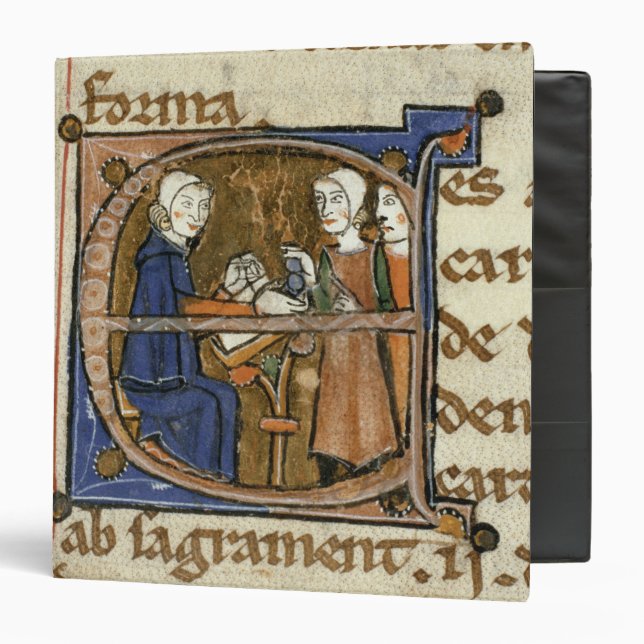 forma.
es
car
de
den
cara
ab sagrament. ij.